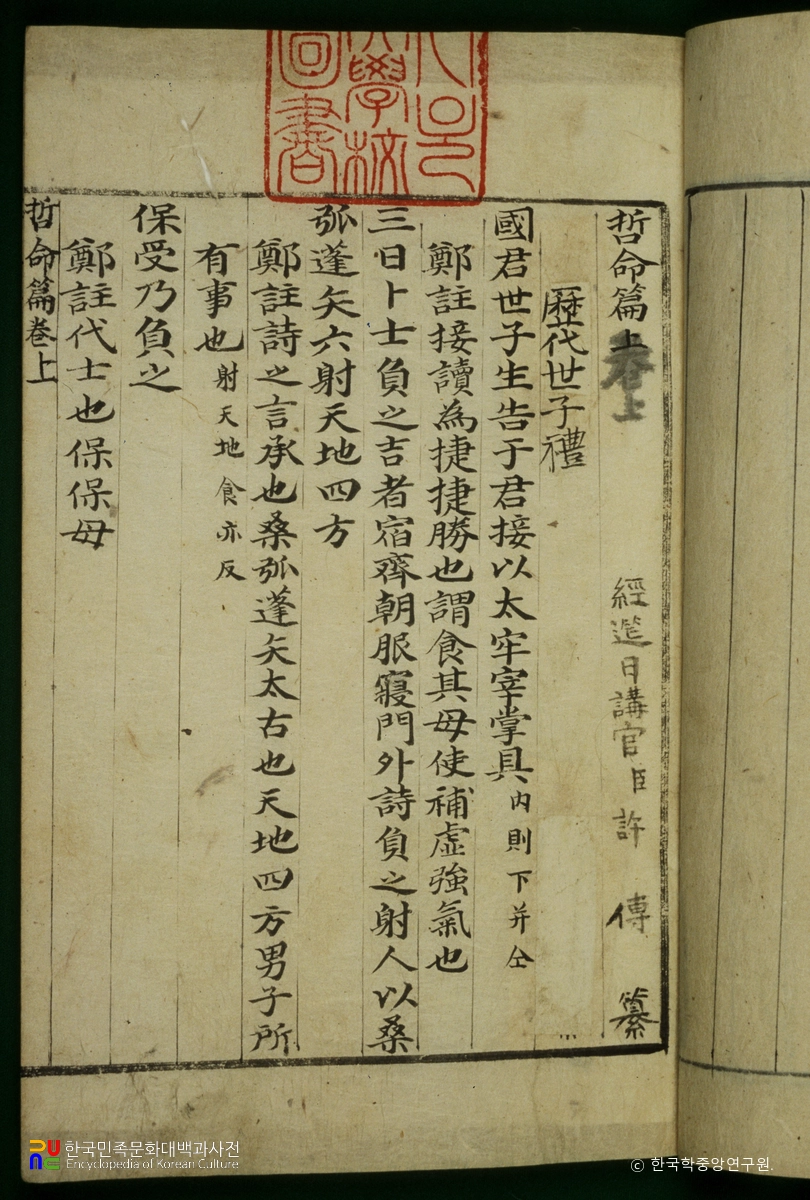 哲命篇上
經筵日講官臣許傳纂
歷代世子禮
國君世子生告于君接以太牢宰掌具内則下并仝
鄭註接讀為捷捷勝也謂食其母使補虛強氣也
三日卜士負之吉者宿齊朝服寢門外詩負之射人以桑
弧蓬矢六射天地四方
鄭註詩之言承也桑弧蓬矢太古也天地四方男子所
有事也射天地食亦反
保受乃負之
鄭註代士也保保母
哲命篇卷上
한국민족문화대백과사전
Encyclopedia of Korean Culture
© 한국학중앙연구원.